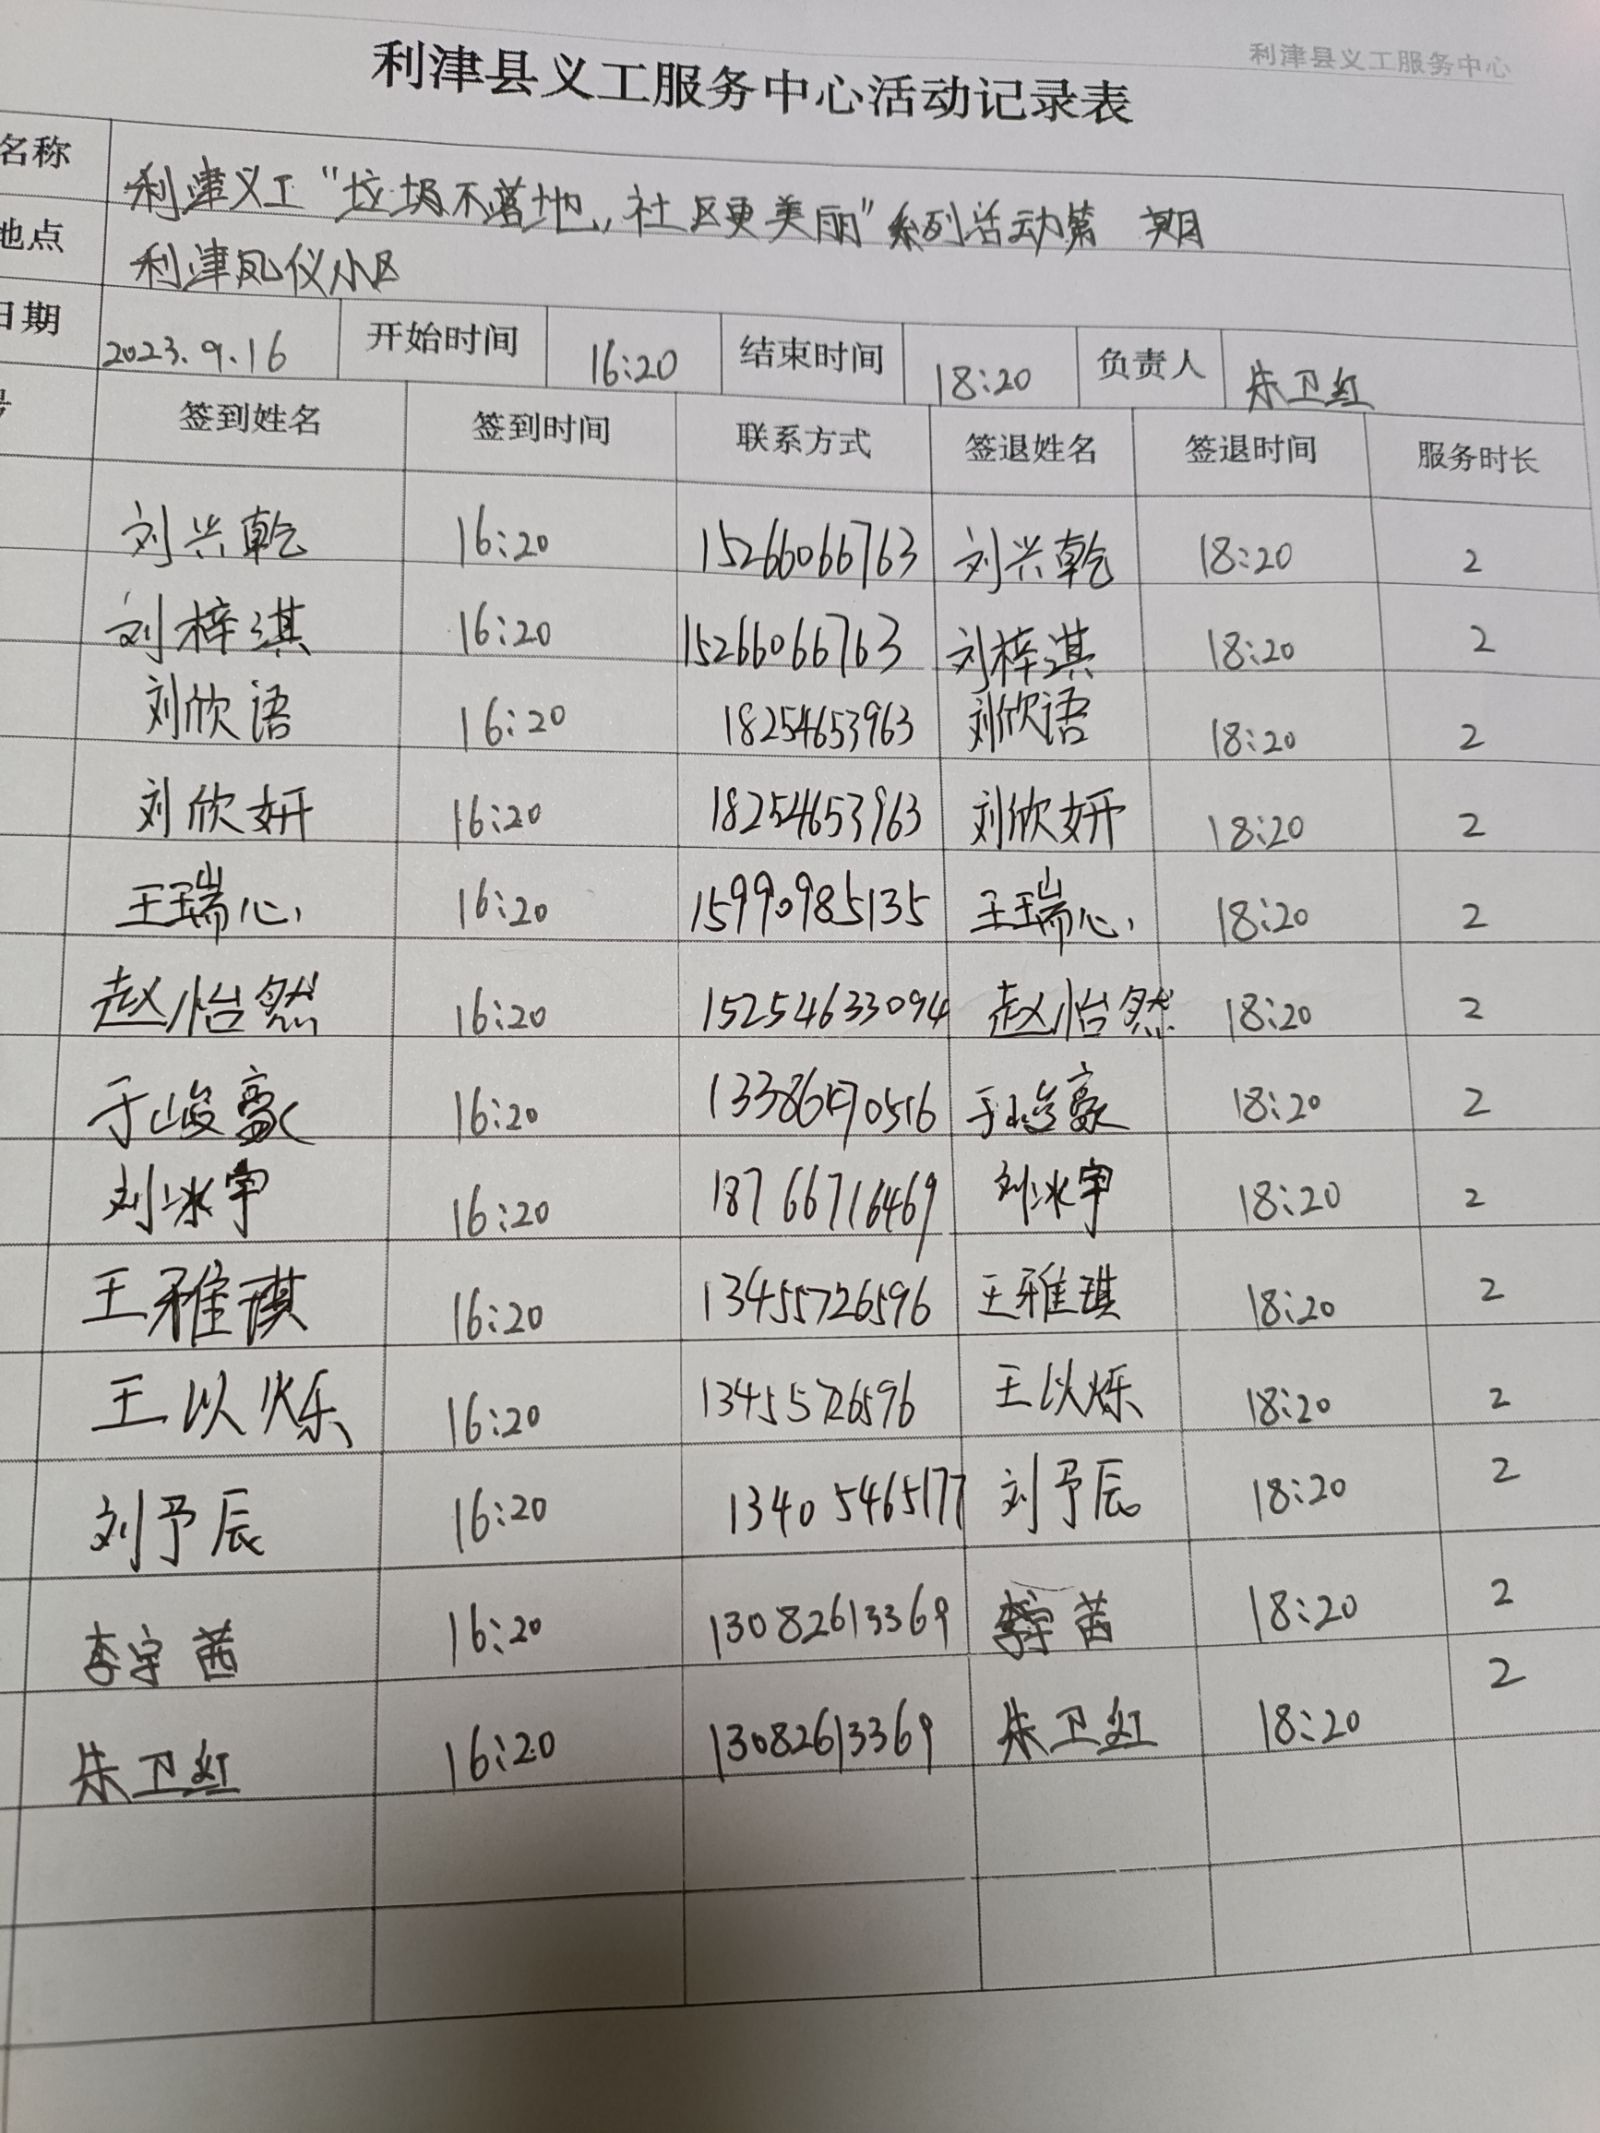 利津县义工服务中心
利津县义工服务中心活动记录表
名称 利津义工“垃圾不落地,社区更美丽”系列活动第 期
地点 利津凤仪小区
日期 2023.9.16 开始时间 16:20 结束时间 18:20 负责人 朱卫红
号 签到姓名 签到时间 联系方式 签退姓名 签退时间 服务时长
刘兴乾 16:20 15266066763 刘兴乾 18:20 2
刘梓淇 16:20 15266066763 刘梓淇 18:20 2
刘欣语 16:20 18254653963 刘欣语 18:20 2
刘欣妍 16:20 18254653963 刘欣妍 18:20 2
王瑞心 16:20 15990985135 王瑞心 18:20 2
赵怡然 16:20 15254633094 赵怡然 18:20 2
于峻豪 16:20 于峻豪 18:20 2
刘冰宇 16:20 18766716469 刘冰宇 18:20 2
王雅琪 16:20 13455726596 王雅琪 18:20 2
王以烁 16:20 13455726596 王以烁 18:20 2
刘予辰 16:20 13405465177 刘予辰 18:20 2
李宇茜 16:20 13082613369 李宇茜 18:20 2
朱卫红 16:20 13082613369 朱卫红 18:20 2